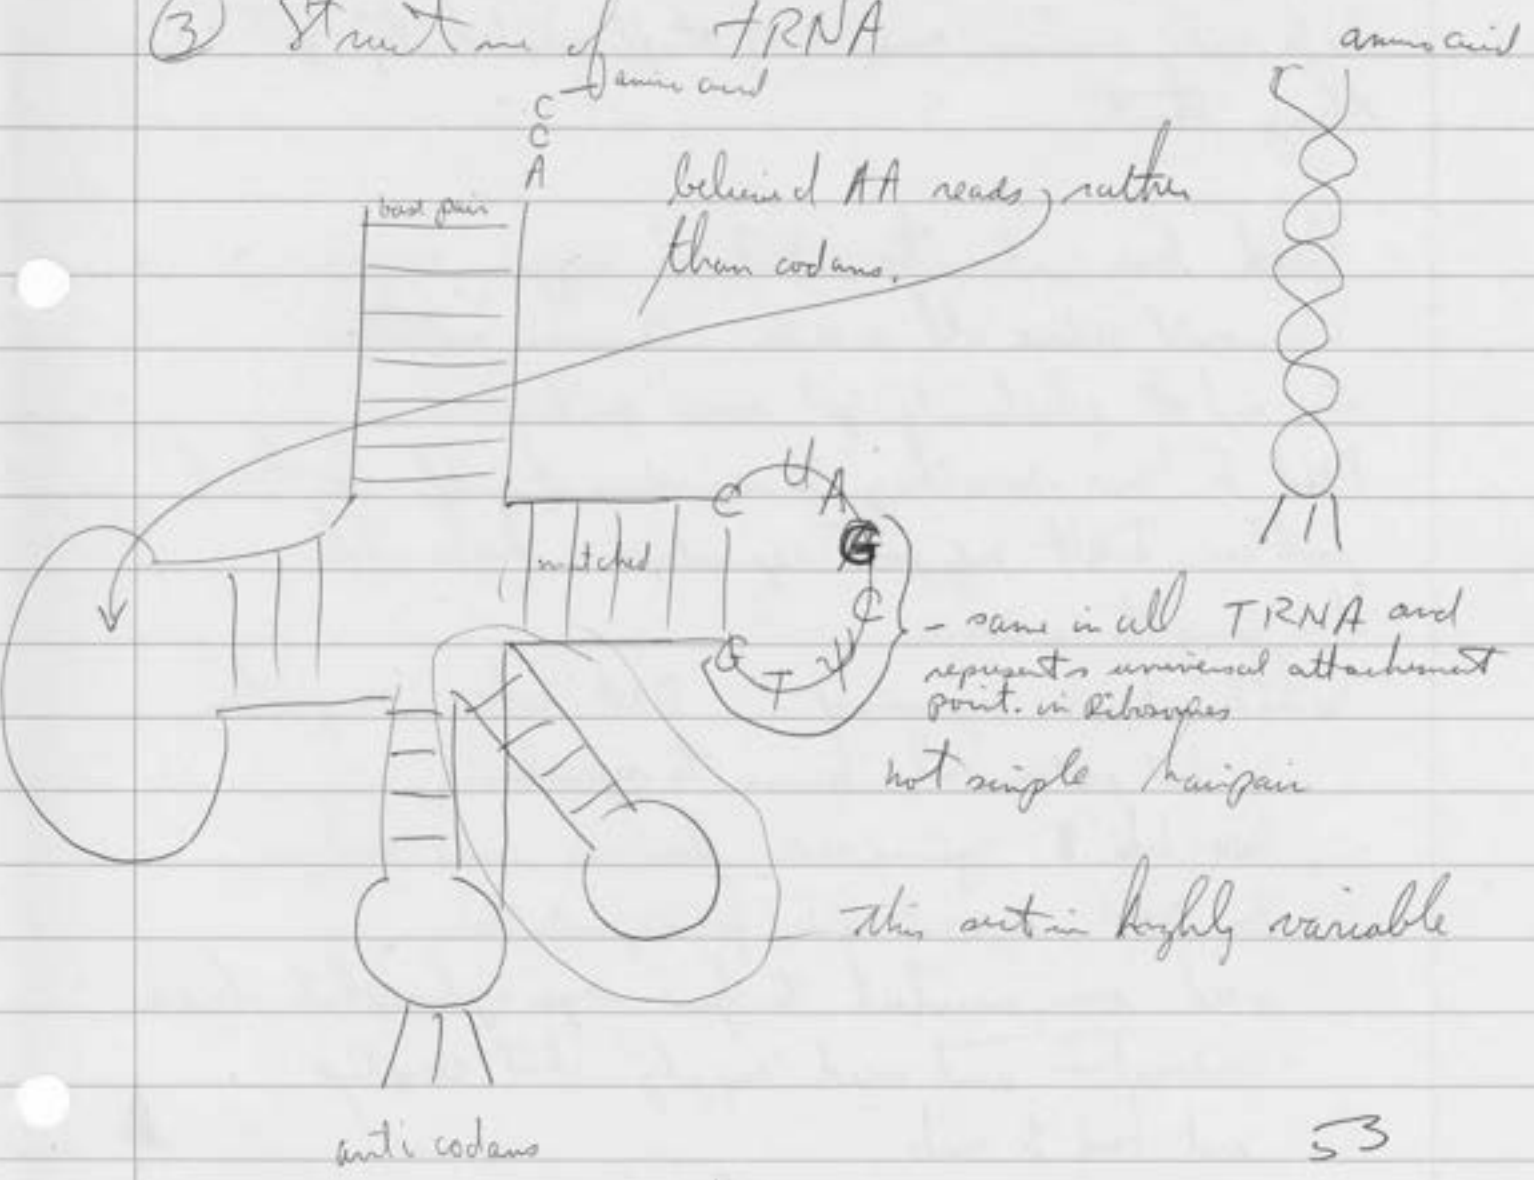 ③ Structure of tRNA
amino acid
amino acid
C
C
A
base pair
believed AA reads, rather
than codans.
C U A
G
matched
C
G T Ψ
- same in all TRNA and
represents universal attachment
point. in Ribosomes
not simple hairpair
This section highly variable
anti codans
53